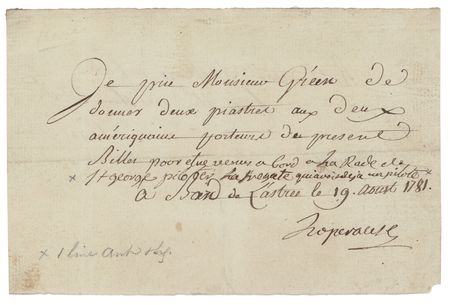 Je prie Monsieur Gréen de
donner deux piastres aux deux
amériquains porteurs du present
Billet pour etre venus a bord a La Rade de
x St george La fregate qui avoit deja un pilote x
à Bord de L'astrée le 19 aoust 1781.
Laperouse
x 1 line